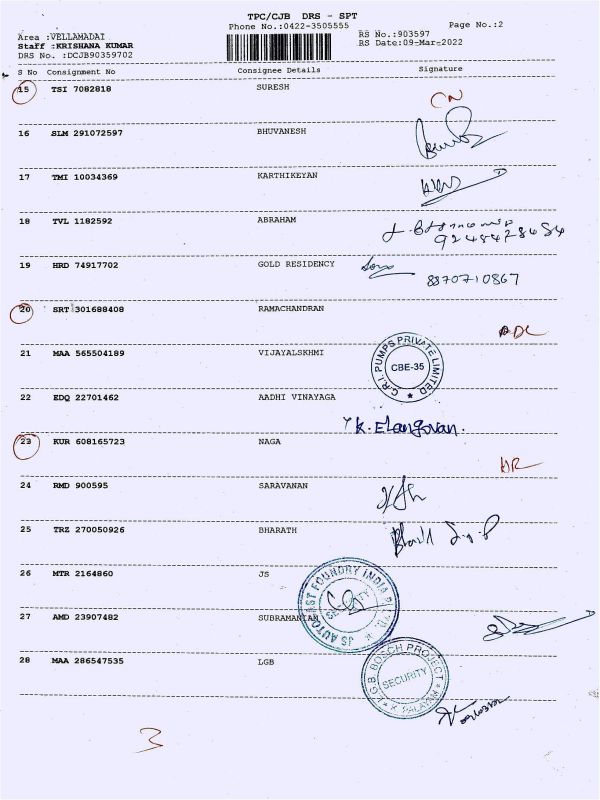 TPC/CJB DRS - SPT
Phone No.:0422-3505555
Page No.:2
Area :VELLAMADAI
RS No.:903597
Staff :KRISHANA KUMAR
RS Date:09-Mar-2022
DRS No. :DCJB90359702
S No Consignment No Consignee Details Signature
15 TSI 7082818 SURESH CN
16 SLM 291072597 BHUVANESH
17 TMI 10034369 KARTHIKEYAN
18 TVL 1182592 ABRAHAM
19 HRD 74917702 GOLD RESIDENCY
8870710867
20 SRT 301688408 RAMACHANDRAN
ADC
21 MAA 565504189 VIJAYALSKHMI
C.R.I. PUMPS PRIVATE LIMITED
CBE-35
22 EDQ 22701462 AADHI VINAYAGA
K. Elangovan.
23 KUR 608165723 NAGA
24 RMD 900595 SARAVANAN
25 TRZ 270050926 BHARATH
26 MTR 2164860 JS
JS AUTOCAST FOUNDRY INDIA
SECURITY
27 AMD 23907482 SUBRAMANIAN
28 MAA 286547535 LGB
L.G.B. BOSCH PROJECT
SECURITY
K. PALAYAM
3